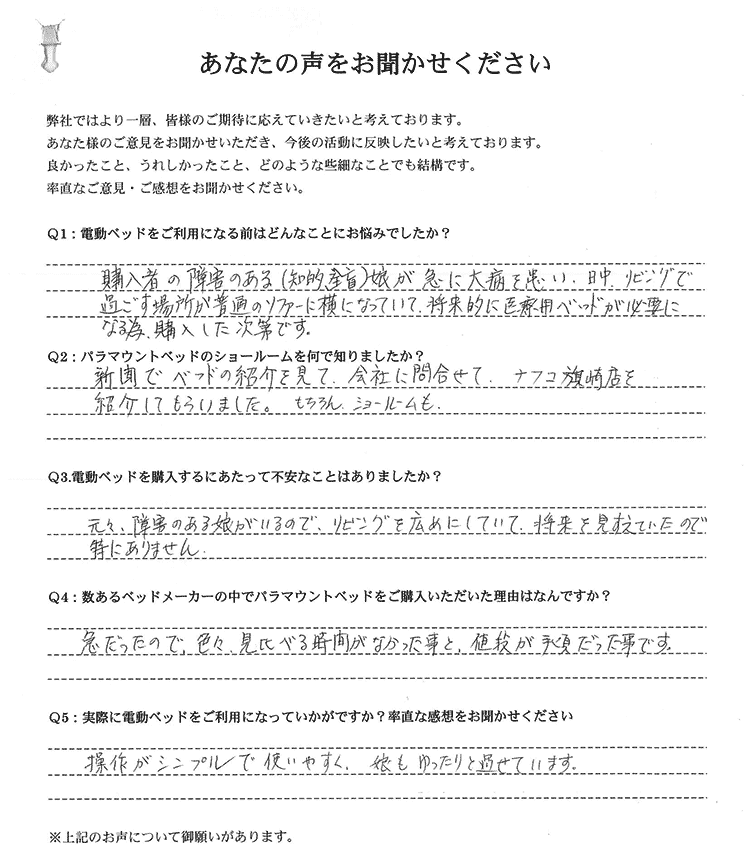 あなたの声をお聞かせください
弊社ではより一層、皆様のご期待に応えていきたいと考えております。
あなた様のご意見をお聞かせいただき、今後の活動に反映したいと考えております。
良かったこと、うれしかったこと、どのような些細なことでも結構です。
率直なご意見・ご感想をお聞かせください。
Q1：電動ベッドをご利用になる前はどんなことにお悩みでしたか？
購入者の障害のある(知的,全盲)娘が急に大病を患い、日中、リビングで
過ごす場所が普通のソファーに横になっていて、将来的に医療用ベッドが必要に
なる為、購入した次第です。
Q2：パラマウントベッドのショールームを何で知りましたか？
新聞でベッドの紹介を見て、会社に問合せて、ナフコ旗崎店を
紹介してもらいました。もちろん、ショールームも、
Q3.電動ベッドを購入するにあたって不安なことはありましたか？
元々、障害のある娘がいるので、リビングを広めにしていて、将来を見すえていたので
特にありません、
Q4：数あるベッドメーカーの中でパラマウントベッドをご購入いただいた理由はなんですか？
急だったので、色々、見比べる時間がなかった事と、値段が手頃だった事です。
Q5：実際に電動ベッドをご利用になっていかがですか？率直な感想をお聞かせください
操作がシンプルで使いやすく、娘もゆったりと過せています。
※上記のお声について御願いがあります。